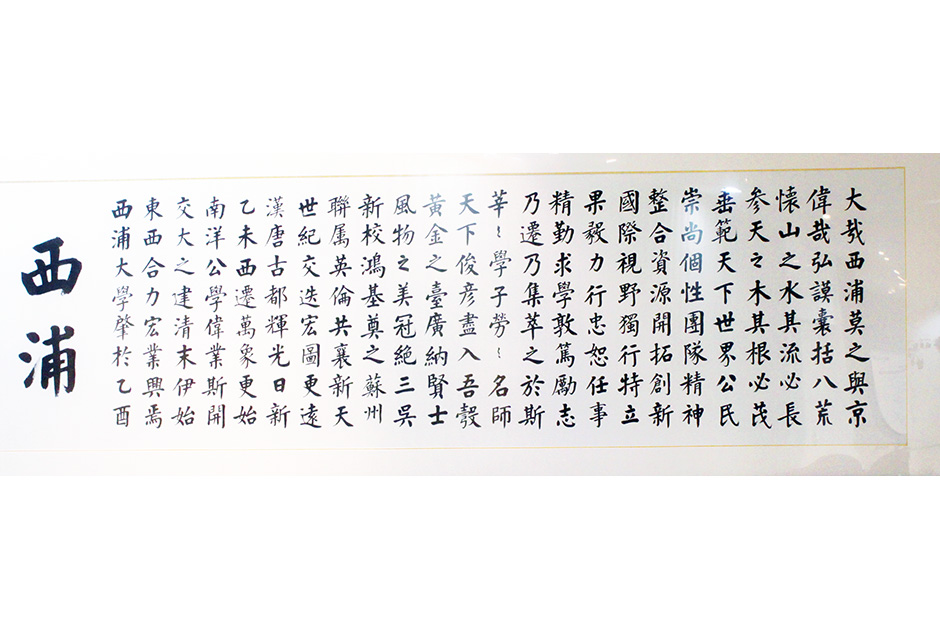 西浦
西浦大學肇於乙酉
東西合力宏業興焉
交大之建清末伊始
南洋公學偉業斯開
乙未西遷萬象更始
漢唐古都輝光日新
世紀交迭宏圖更遠
聯属英倫共襄新天
新校鴻基奠之蘇州
風物之美冠絕三吳
黃金之臺廣納賢士
天下俊彥盡入吾彀
莘〻學子勞〻名師
乃遷乃集萃之於斯
精勤求學敦篤勵志
果毅力行忠恕任事
國際視野獨行特立
整合資源開拓創新
崇尚個性團隊精神
垂範天下世界公民
参天之木其根必茂
懷山之水其流必長
偉哉弘謨囊括八荒
大哉西浦莫之與京